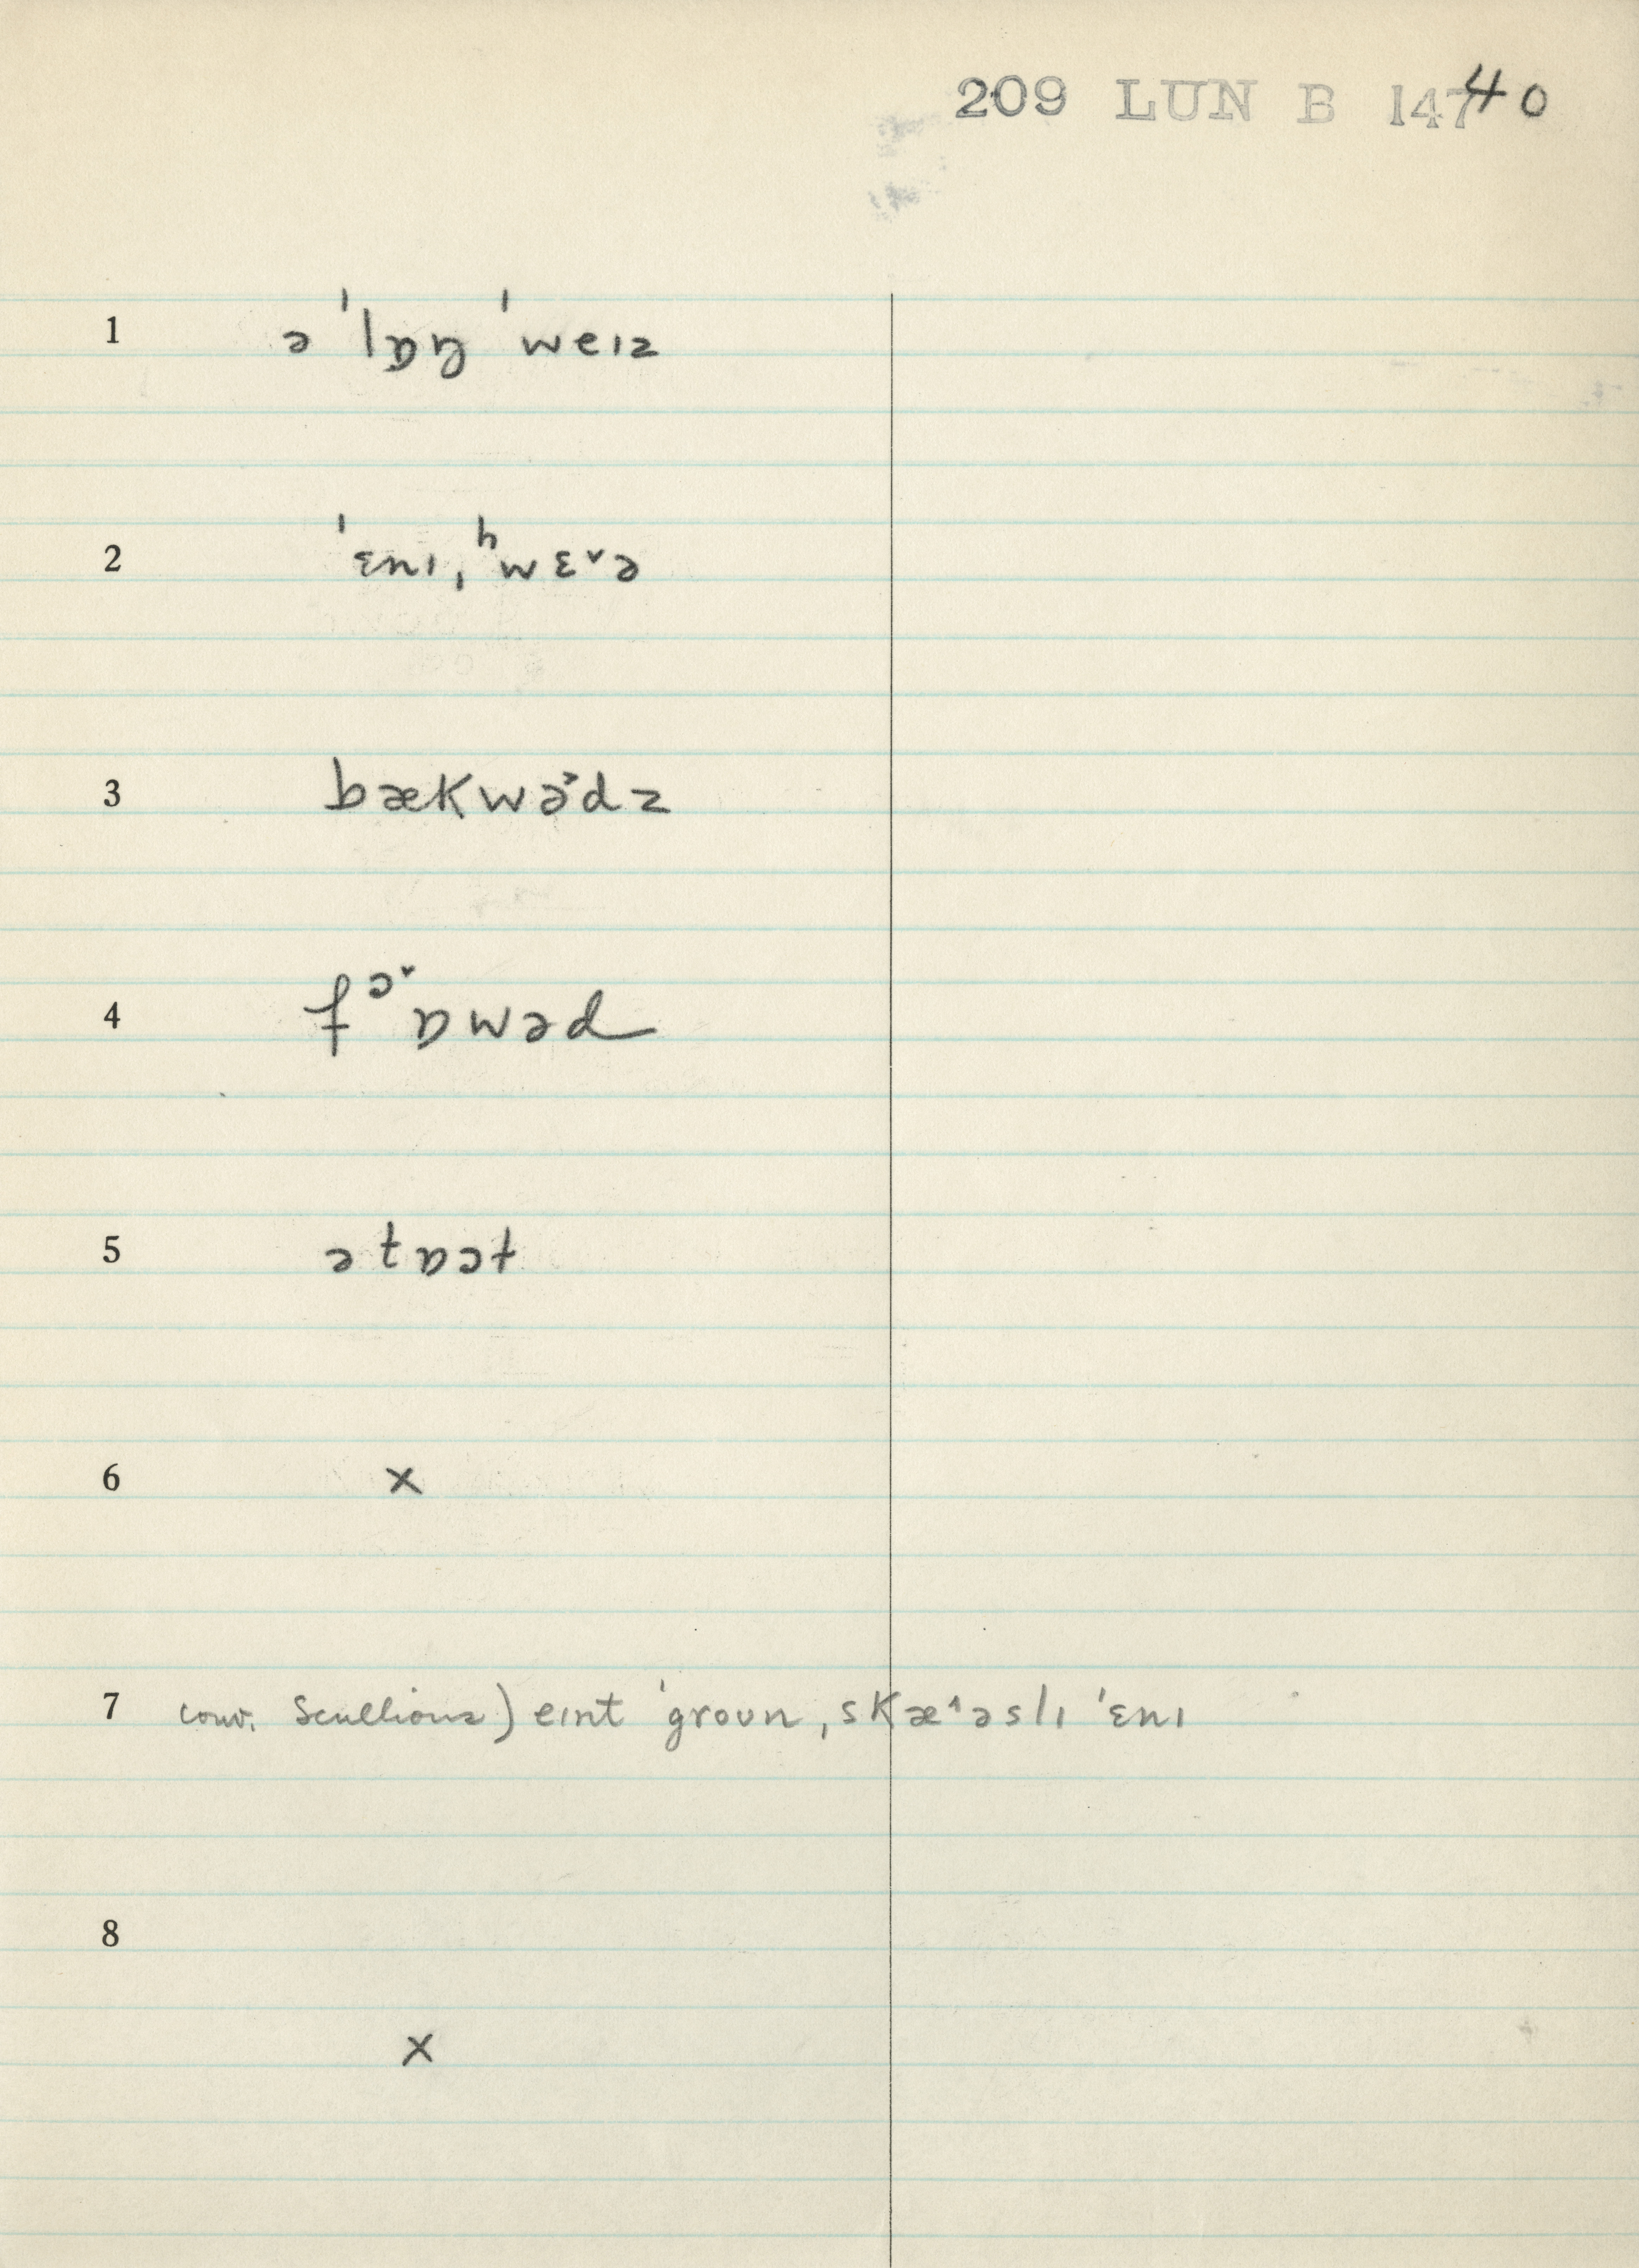 209 LUN B 147 40
1 ə ˈlɒŋ ˈweɪz
2 ˈɛnɪˌʰwɛ˅ə
3 bækwə˃dz
4 fᵊ˅ɒwəd
5 ətɒɔt
6 x
7 conv. Scullions) eɪnt ˈgroʊn ˌskæ˄əslɪ ˈɛnɪ
8
x